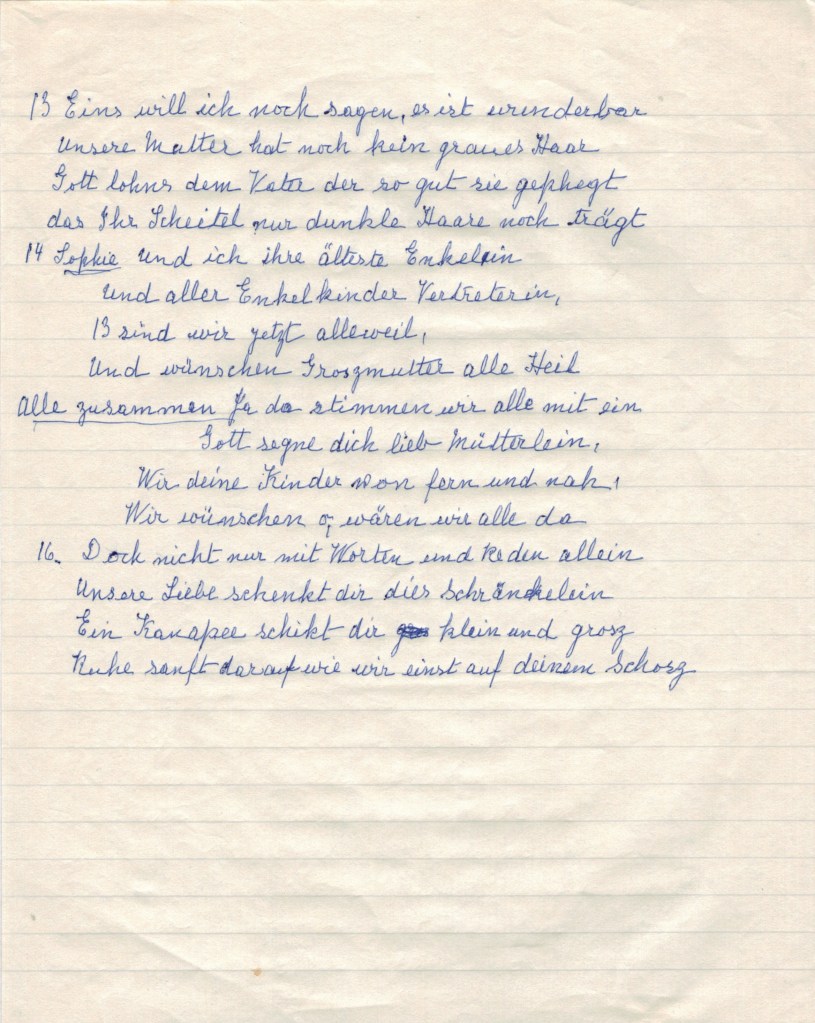 13 Eins will ich noch sagen, es ist wunderbar
Unsere Mutter hat noch kein graues Haar
Gott lohns dem Vater der so gut sie gephegt
das Ihr Scheitel nur dunkle Haare noch trägt
14 Sophie und ich ihre älteste Enkelein
Und aller Enkelkinder Vertreterin,
13 sind wir jetzt alleweil,
Und wünschen Groszmutter alle Heil
Alle zusammen Ja da stimmen wir alle mit ein
Gott segne dich lieb Mütterlein,
Wir deine Kinder von fern und nah,
Wir wünschen o, wären wir alle da
16. Dock nicht nur mit Worten und Reden allein
Unsere Liebe schenkt dir dies Schränkelein
Ein Kanapee schikt dir klein und grosz
Ruhe sanft darauf wie wir einst auf deinem Schosz